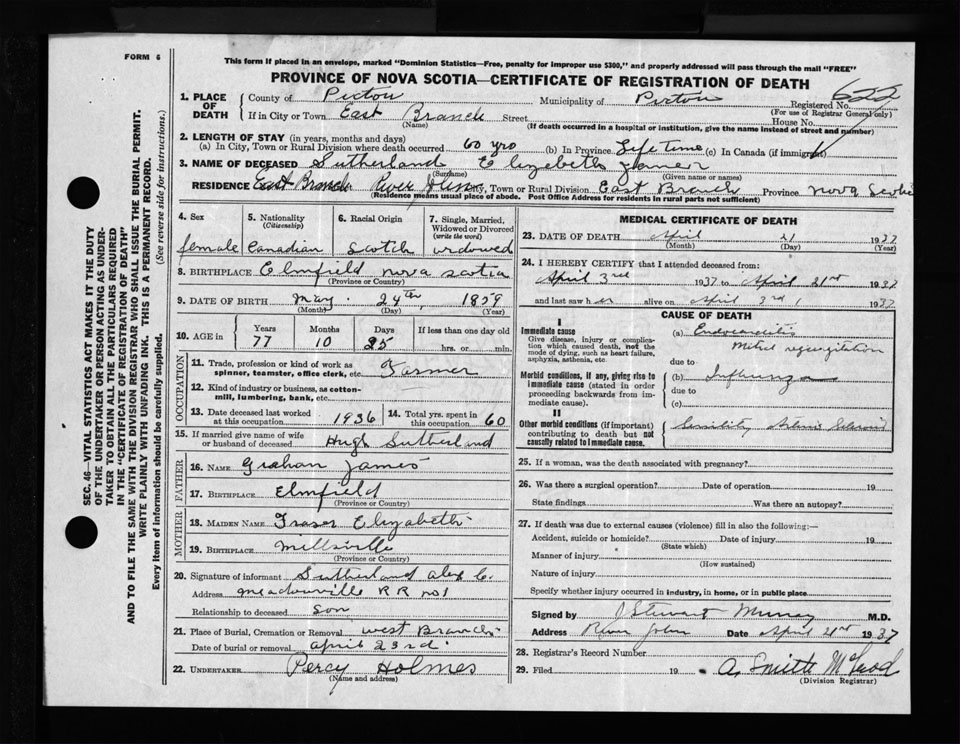 FORM 6
This form if placed in an envelope, marked "Dominion Statistics—Free, penalty for improper use $300," and properly addressed will pass through the mail "FREE"
PROVINCE OF NOVA SCOTIA—CERTIFICATE OF REGISTRATION OF DEATH
SEC. 46—VITAL STATISTICS ACT MAKES IT THE DUTY
OF THE UNDERTAKER OR PERSON ACTING AS UNDER-
TAKER TO OBTAIN ALL THE PARTICULARS REQUIRED
IN THE "CERTIFICATE OF REGISTRATION OF DEATH"
AND TO FILE THE SAME WITH THE DIVISION REGISTRAR WHO SHALL ISSUE THE BURIAL PERMIT.
WRITE PLAINLY WITH UNFADING INK. THIS IS A PERMANENT RECORD.
Every item of information should be carefully supplied. (See reverse side for instructions.)
1. PLACE OF DEATH
County of Pictou Municipality of Pictou Registered No. 622
(For use of Registrar General only)
If in City or Town East Branch Street House No.
(Name) (If death occurred in a hospital or institution, give the name instead of street and number)
2. LENGTH OF STAY (in years, months and days)
(a) In City, Town or Rural Division where death occurred 60 yrs (b) In Province Life time (c) In Canada (if immigrant)
3. NAME OF DECEASED Sutherland Elizabeth
(Surname) (Given name or names)
RESIDENCE East Branch River John City, Town or Rural Division East Branch Province Nova Scotia
(Residence means usual place of abode. Post Office Address for residents in rural parts not sufficient)
4. Sex female
5. Nationality (Citizenship) Canadian
6. Racial Origin Scotch
7. Single, Married, Widowed or Divorced (write the word) widowed
8. BIRTHPLACE Elmfield nova scotia
(Province or Country)
9. DATE OF BIRTH may 24th 1859
(Month) (Day) (Year)
10. AGE in Years 77 Months 10 Days 25 If less than one day old hrs. or min.
OCCUPATION
11. Trade, profession or kind of work as spinner, teamster, office clerk, etc. Farmer
12. Kind of industry or business, as cotton-mill, lumbering, bank, etc.
13. Date deceased last worked at this occupation 1936 14. Total yrs. spent in this occupation 60
15. If married give name of wife or husband of deceased Hugh Sutherland
FATHER
16. NAME Graham James
17. BIRTHPLACE Elmfield
(Province or Country)
MOTHER
18. MAIDEN NAME Fraser Elizabeth
19. BIRTHPLACE millsville
(Province or Country)
20. Signature of informant Sutherland Alex C.
Address meadowville RR no 1
Relationship to deceased son
21. Place of Burial, Cremation or Removal west Branch
Date of burial or removal april 23rd
22. UNDERTAKER Percy Holmes
(Name and address)
MEDICAL CERTIFICATE OF DEATH
23. DATE OF DEATH April 21 1937
(Month) (Day) (Year)
24. I HEREBY CERTIFY that I attended deceased from:
April 3rd 1937 to April 21st 1937
and last saw her alive on April 1937
CAUSE OF DEATH
I
Immediate cause
Give disease, injury or complication which caused death, not the mode of dying, such as heart failure, asphyxia, asthenia, etc.
(a) Endocarditis
Mitral regurgitation
due to
Morbid conditions, if any, giving rise to immediate cause (stated in order proceeding backwards from immediate cause).
(b) Influenza
due to
(c)
II
Other morbid conditions (if important) contributing to death but not causally related to immediate cause.
Senility
25. If a woman, was the death associated with pregnancy?
26. Was there a surgical operation? Date of operation 19
State findings Was there an autopsy?
27. If death was due to external causes (violence) fill in also the following:—
Accident, suicide or homicide? Date of injury 19
(State which)
Manner of injury
(How sustained)
Nature of injury
Specify whether injury occurred in industry, in home, or in public place
Signed by J Stewart Murray M.D.
Address River John Date April 21st 1937
28. Registrar's Record Number
29. Filed 19 A. Smith McLeod
(Division Registrar)